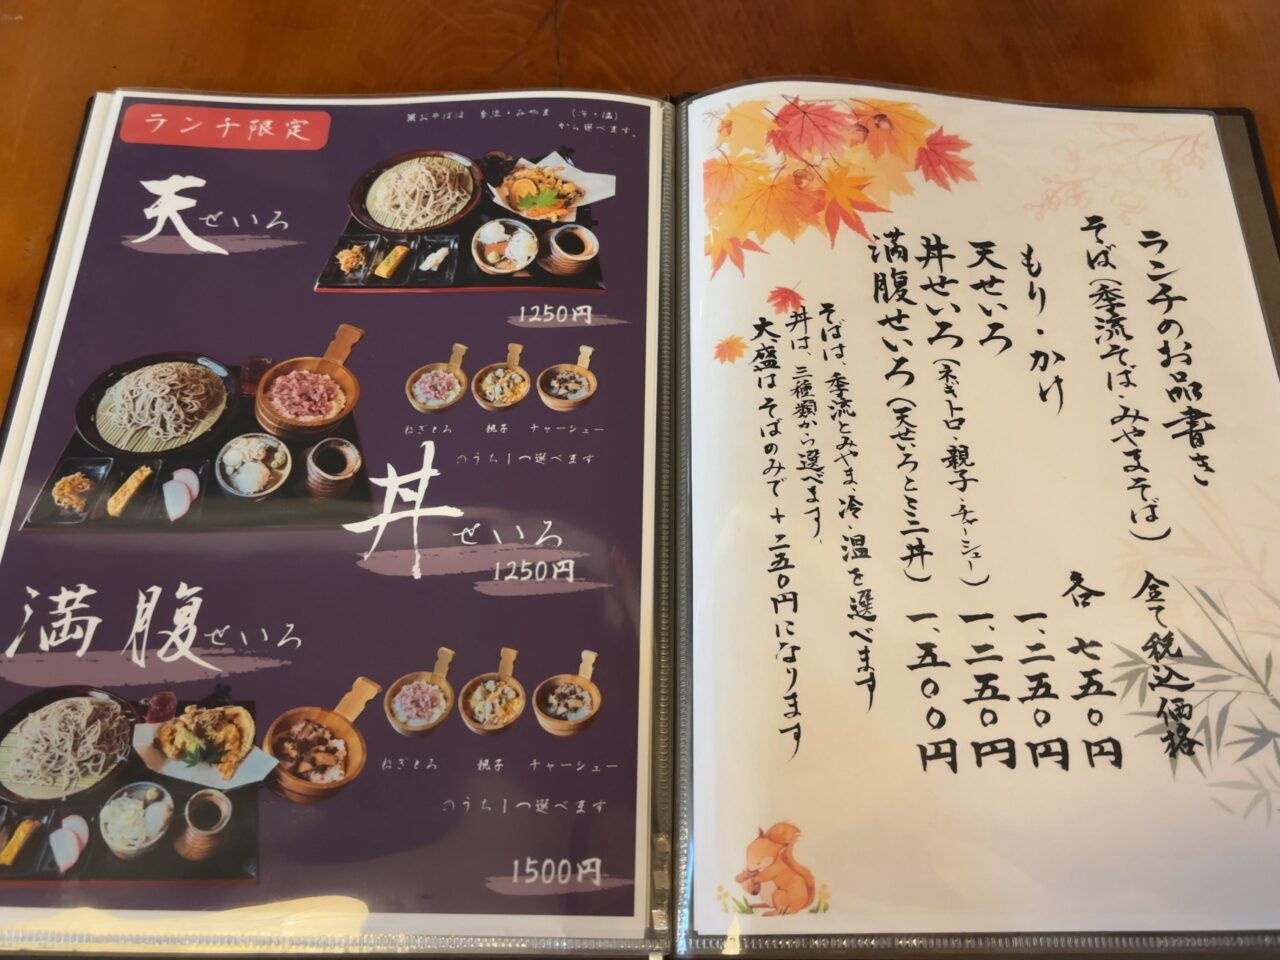 ランチ限定
お そばは 季流・みやま (冷・温)
から選べます。
天せいろ
1250円
ねぎとろ 親子 チャーシュー
のうち1つ選べます
丼せいろ
1250円
満腹せいろ
ねぎとろ 親子 チャーシュー
のうち1つ選べます
1500円
ランチのお品書き 全て税込価格
そば(季流そば・みやまそば)
もり・かけ 各 七五〇円
天せいろ 一、二五〇円
丼せいろ(ネギトロ・親子・チャーシュー) 一、二五〇円
満腹せいろ(天せいろとミニ丼) 一、五〇〇円
そばは、季流とみやま、冷・温を選べます
丼は、三種類から選べます、
大盛はそばのみで+二五〇円になります